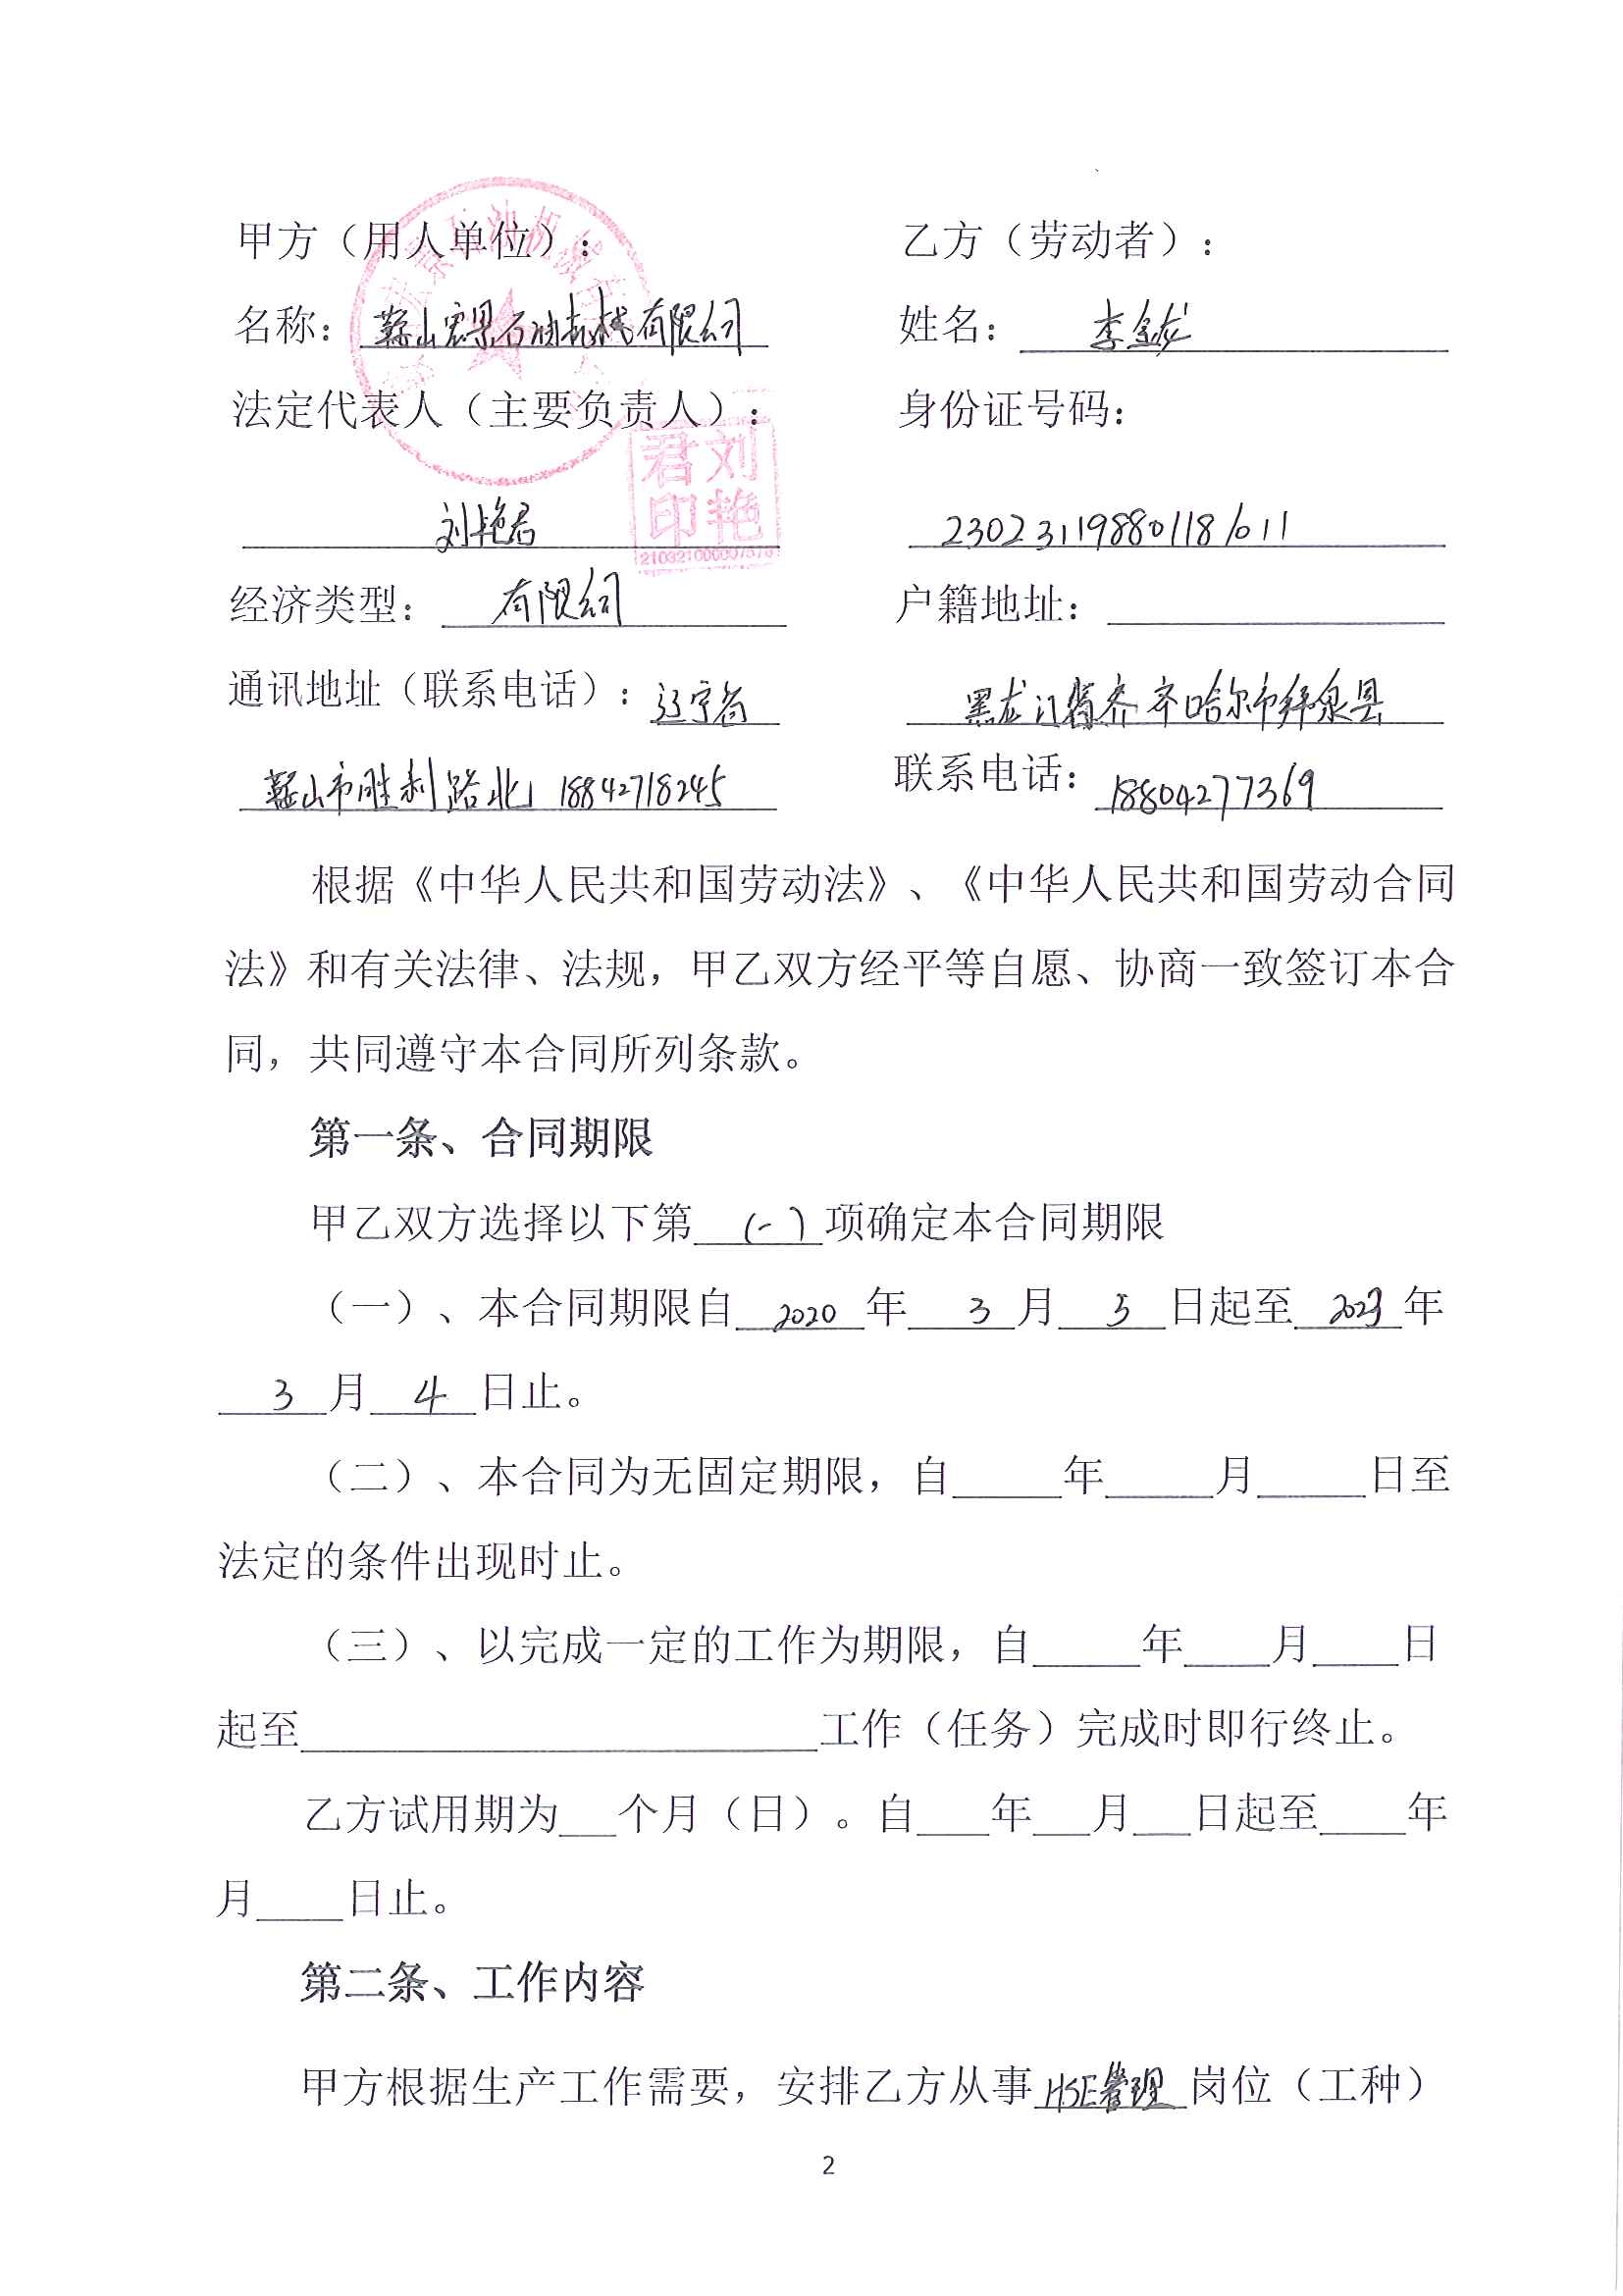 甲方（用人单位）：
乙方（劳动者）：
名称：鞍山宏景石油机械有限公司
姓名：李金龙
法定代表人（主要负责人）：
身份证号码：
刘艳君
刘艳君印
230231198801181011
经济类型：有限公司
户籍地址：
通讯地址（联系电话）：辽宁省
黑龙江省齐齐哈尔市拜泉县
鞍山市胜利路北 18842718245
联系电话：18804277369
根据《中华人民共和国劳动法》、《中华人民共和国劳动合同
法》和有关法律、法规，甲乙双方经平等自愿、协商一致签订本合
同，共同遵守本合同所列条款。
第一条、合同期限
甲乙双方选择以下第（一）项确定本合同期限
（一）、本合同期限自2020年3月5日起至2023年
3月4日止。
（二）、本合同为无固定期限，自____年____月____日至
法定的条件出现时止。
（三）、以完成一定的工作为期限，自____年____月____日
起至____工作（任务）完成时即行终止。
乙方试用期为__个月（日）。自___年__月__日起至____年
月____日止。
第二条、工作内容
甲方根据生产工作需要，安排乙方从事HSE管理岗位（工种）
2